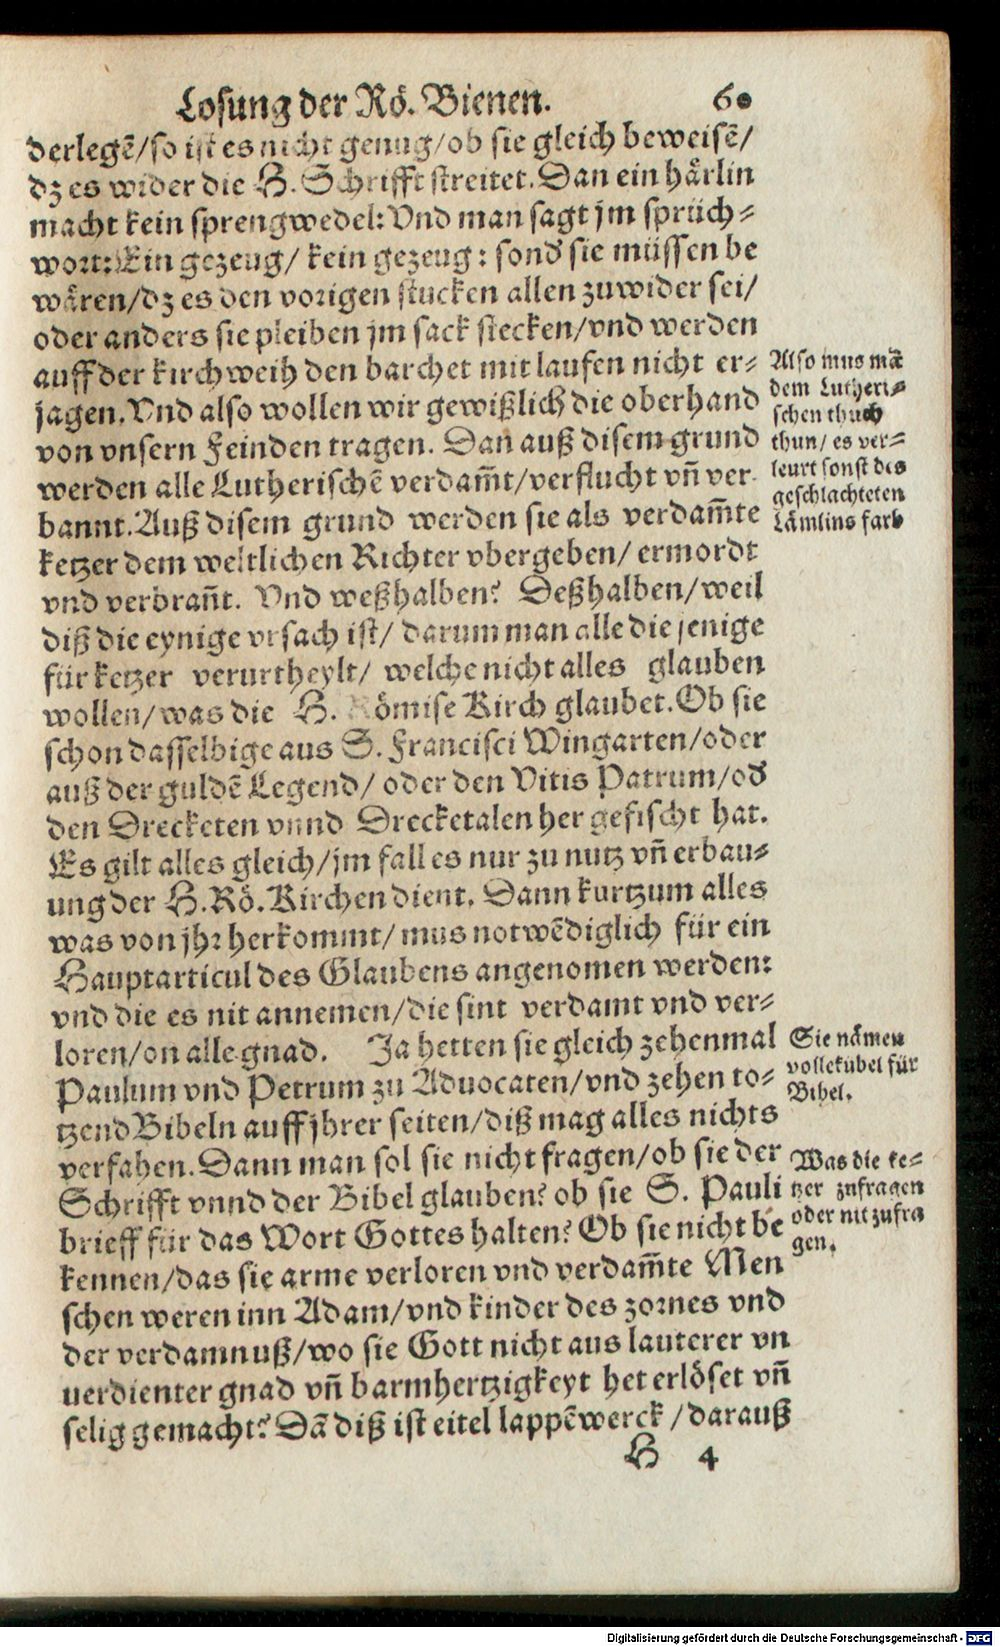 Losung der Rö. Bienen. 60
derlegẽ/so ist es nicht genug/ob sie gleich beweisẽ/
dz es wider die H. Schrifft streitet. Dan ein härlin
macht kein sprengwedel: Vnd man sagt jm sprüch⸗
wort: Ein gezeug/ kein gezeug: sond̕ sie müssen be
wären/dz es den vorigen stucken allen zuwider sei/
oder anders sie pleiben jm sack stecken/vnd werden
auff der kirchweih den barchet mit laufen nicht er⸗
jagen. Vnd also wollen wir gewißlich die oberhand
von vnsern Feinden tragen. Dan auß disem grund
werden alle Lutherischẽ verdam̃t/verflucht vñ ver
bannt. Auß disem grund werden sie als verdam̃te
ketzer dem weltlichen Richter vbergeben/ ermordt
vnd verbrañt. Vnd weßhalben? Deßhalben/weil
diß die eynige vrsach ist/ darum man alle die jenige
für ketzer verurtheylt/ welche nicht alles glauben
wollen/was die H. Römise Kirch glaubet. Ob sie
schon dasselbige aus S. Francisci Wingarten/oder
auß der guldẽ Legend/ oder den Vitis Patrum/od̕
den Drecketen vnnd Drecketalen her gefischt hat.
Es gilt alles gleich/jm fall es nur zu nutz vñ erbau⸗
ung der H. Rö. Kirchen dient. Dann kurtzum alles
was von jhr herkommt/ mus notwẽdiglich für ein
Hauptarticul des Glaubens angenomen werden:
vnd die es nit annemen/die sint verdamt vnd ver⸗
loren/on alle gnad. Ja hetten sie gleich zehenmal
Paulum vnd Petrum zu Aduocaten/vnd zehen to⸗
tzend Bibeln auff jhrer seiten/diß mag alles nichts
verfahen. Dann man sol sie nicht fragen/ob sie der
Schrifft vnnd der Bibel glauben? ob sie S. Pauli
brieff für das Wort Gottes halten? Ob sie nicht be
kennen/das sie arme verloren vnd verdam̃te Men
schen weren inn Adam/vnd kinder des zornes vnd
der verdamnuß/wo sie Gott nicht aus lauterer vn
uerdienter gnad vñ barmhertzigkeyt het erlöset vñ
selig gemacht? Dã diß ist eitel lappẽwerck /darauß
H 4
Also mus mã
dem Lutheri⸗
schen thuch
thun/ es ver⸗
leurt sonst des
geschlachteten
Lämlins farb
Sie nämen
vollekübel für
Bibel.
Was die ke⸗
tzer zufragen
oder nit zufra
gen.
Digitalisierung gefördert durch die Deutsche Forschungsgemeinschaft - DFG